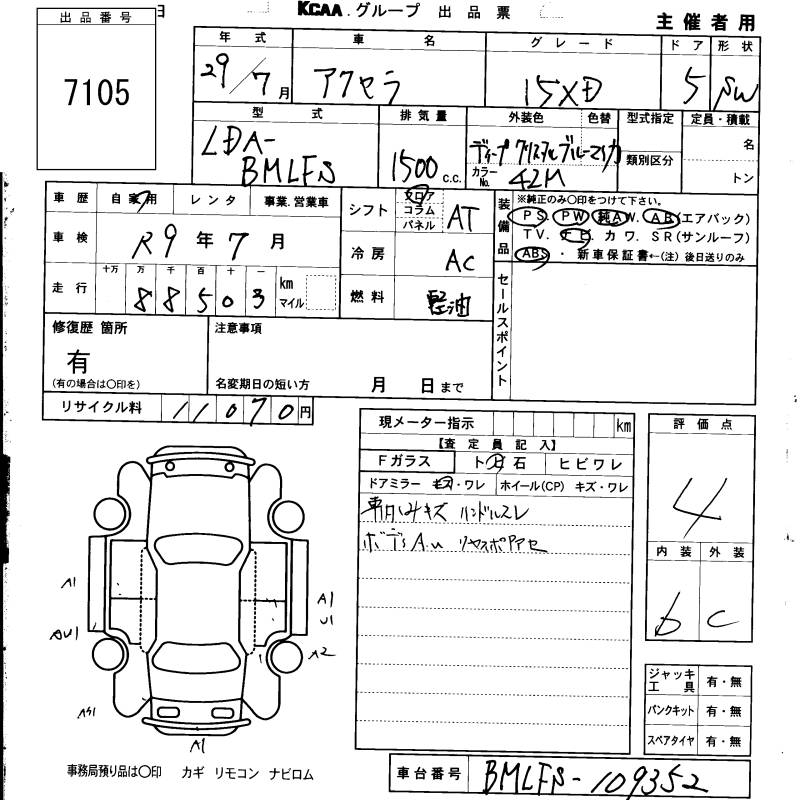 出品番号
7105
日
KCAA.グループ 出品票
主催者用
年式 車名 グレード ドア 形状
29/7月 アクセラ 15XD 5 SW
型式 排気量 外装色 色替 型式指定 定員・積載
LDA-
BMLFS
1500 c.c.
ディープクリスタルブルーマイカ
カラーNo. 42M
類別区分
名
トン
車歴 自家用 レンタ 事業.営業車
車検 R9年7月
走行 十万 万 千 百 十 一
88503 km マイル
シフト フロア コラム パネル AT
冷房 AC
燃料 軽油
装備品
※純正のみ○印をつけて下さい。
PS. PW. 純AW. AB.(エアバック)
TV. ナビ. カワ. SR(サンルーフ)
ABS ・ 新車保証書←(注)後日送りのみ
セールスポイント
修復歴 箇所
有
(有の場合は○印を)
注意事項
名変期日の短い方 月 日まで
リサイクル料 11070円
現メーター指示 km
【査定員記入】
Fガラス トビ石 ヒビワレ
ドアミラー キズ・ワレ ホイール(CP) キズ・ワレ
ハンドルスレ
評価点
4
内装 外装
b C
A1
AU1
A1
U1
A2
AS1
A1
ジャッキ工具 有・無
パンクキット 有・無
スペアタイヤ 有・無
事務局預り品は○印 カギ リモコン ナビロム
車台番号 BMLFS-109352